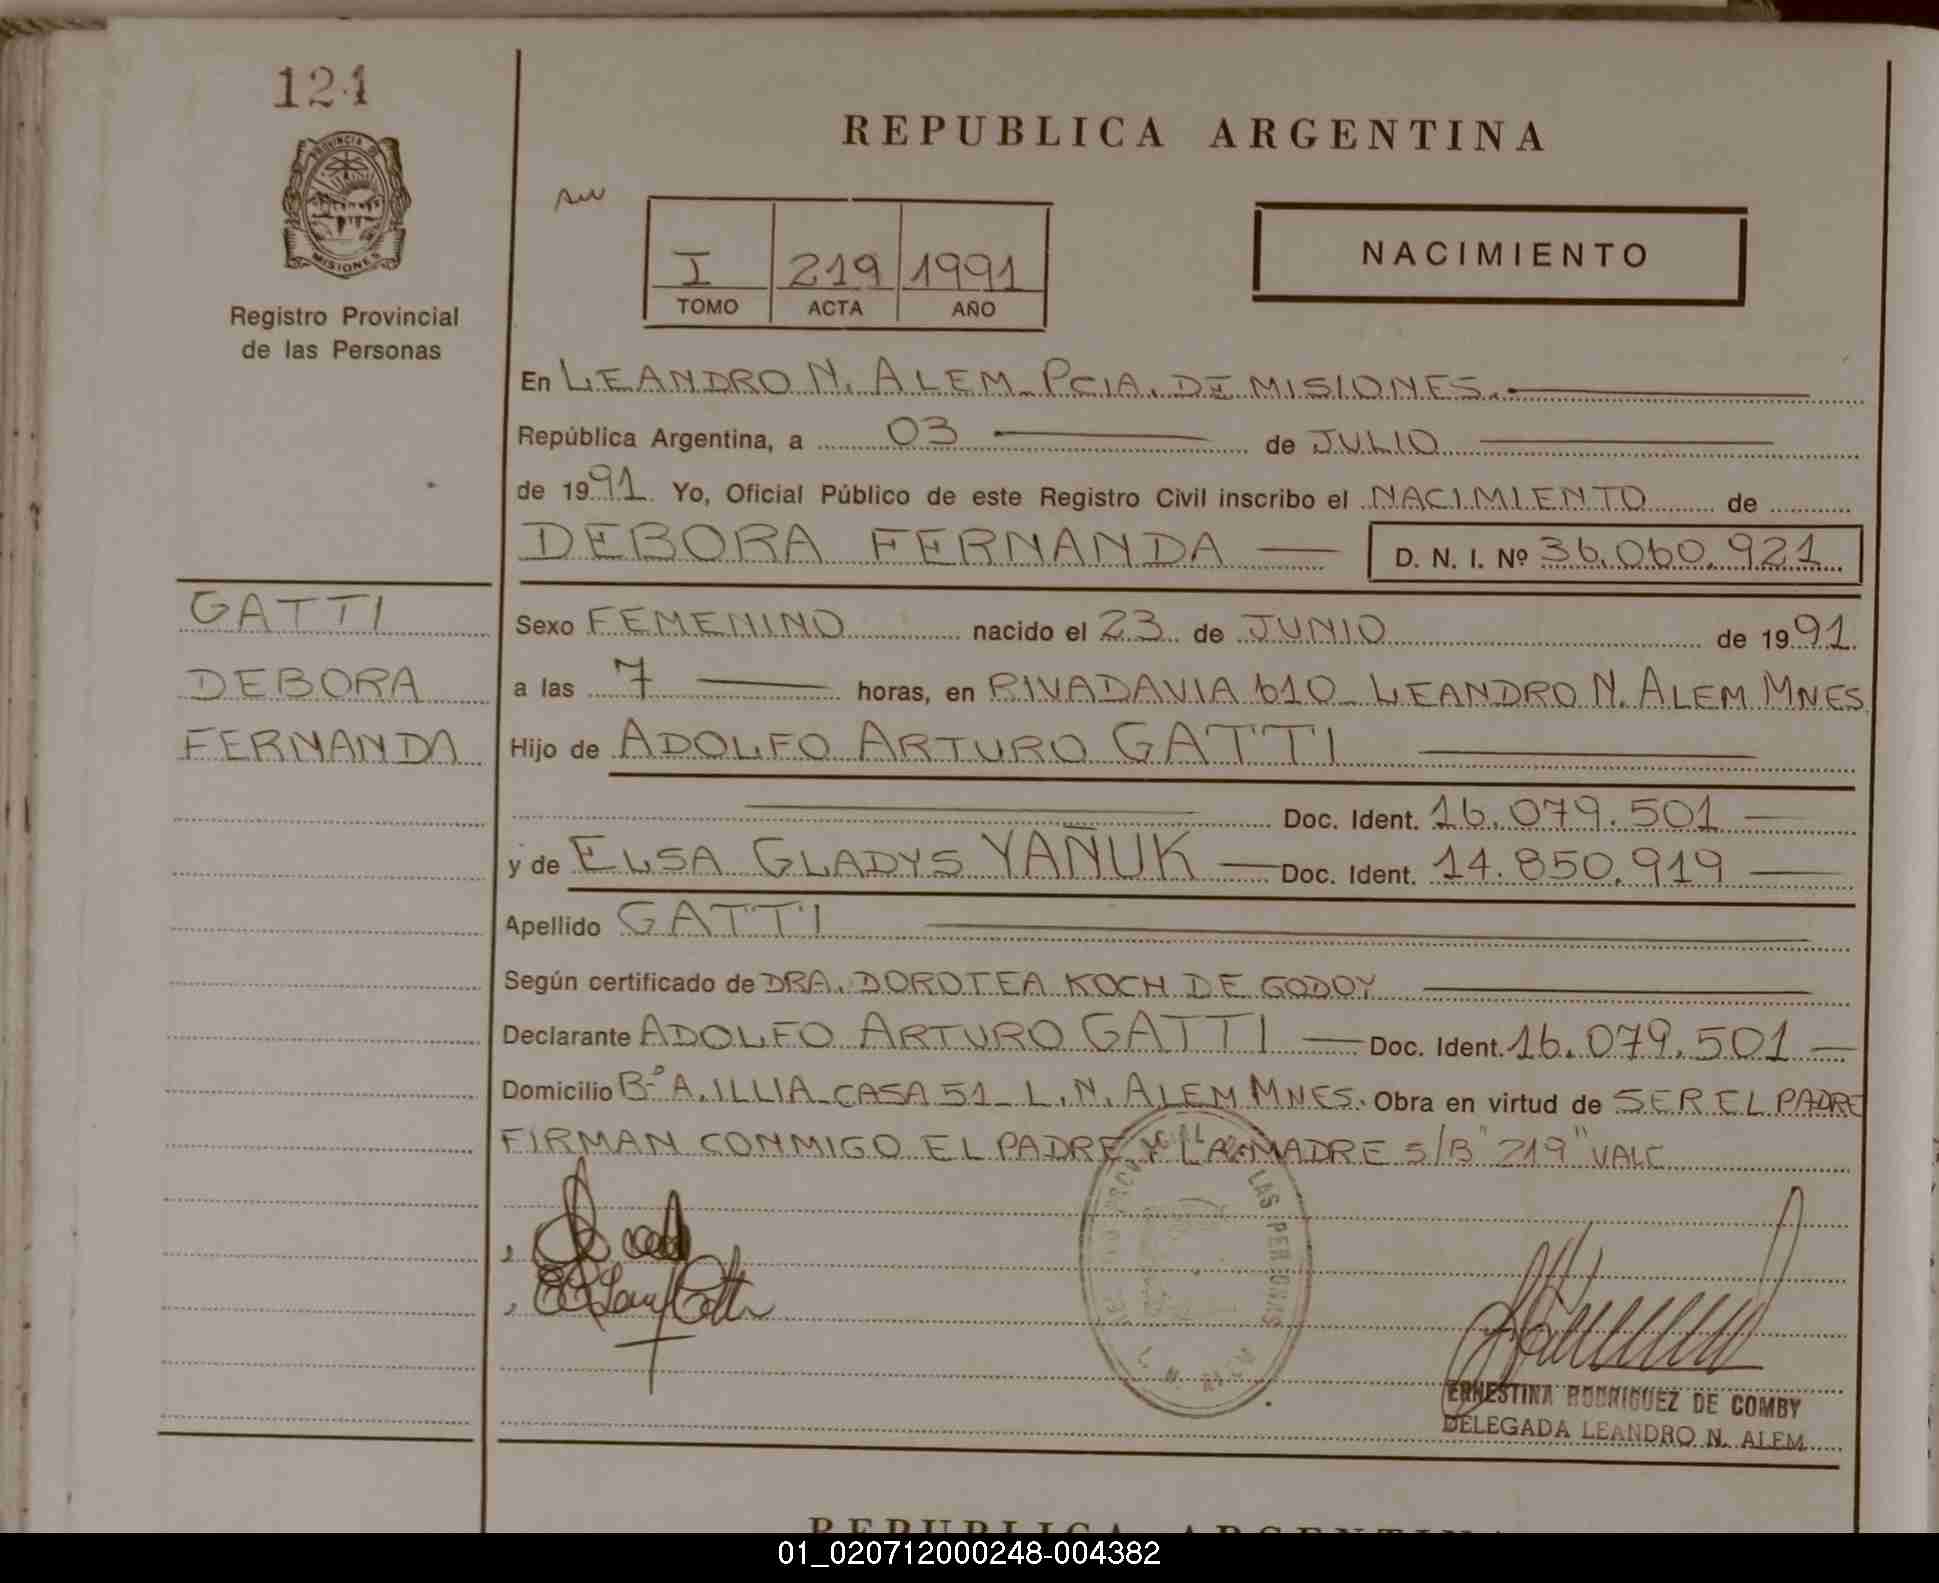 124
PROVINCIA DE
MISIONES
Registro Provincial
de las Personas
REPUBLICA ARGENTINA
I 219 1991
TOMO ACTA AÑO
NACIMIENTO
En LEANDRO N. ALEM - PCIA. DE MISIONES.
República Argentina, a 03 de JULIO
de 1991. Yo, Oficial Público de este Registro Civil inscribo el NACIMIENTO de
DEBORA FERNANDA D. N. I. Nº 36.060.921
GATTI
DEBORA
FERNANDA
Sexo FEMENINO nacido el 23 de JUNIO de 1991.
a las 7 horas, en RIVADAVIA 610 - LEANDRO N. ALEM MNES
Hijo de ADOLFO ARTURO GATTI
Doc. Ident. 16.079.501
y de ELSA GLADYS YAÑUK Doc. Ident. 14.850.919
Apellido GATTI
Según certificado de DRA. DOROTEA KOCH DE GODOY
Declarante ADOLFO ARTURO GATTI Doc. Ident. 16.079.501
Domicilio Bº A. ILLIA - CASA 51 - L. N. ALEM MNES. Obra en virtud de SER EL PADRE
FIRMAN CONMIGO EL PADRE Y LA MADRE S/B "219" VALE
LAS PERSONAS
ERNESTINA RODRIGUEZ DE COMBY
DELEGADA LEANDRO N. ALEM
REPUBLICA ARGENTINA
01_020712000248-004382